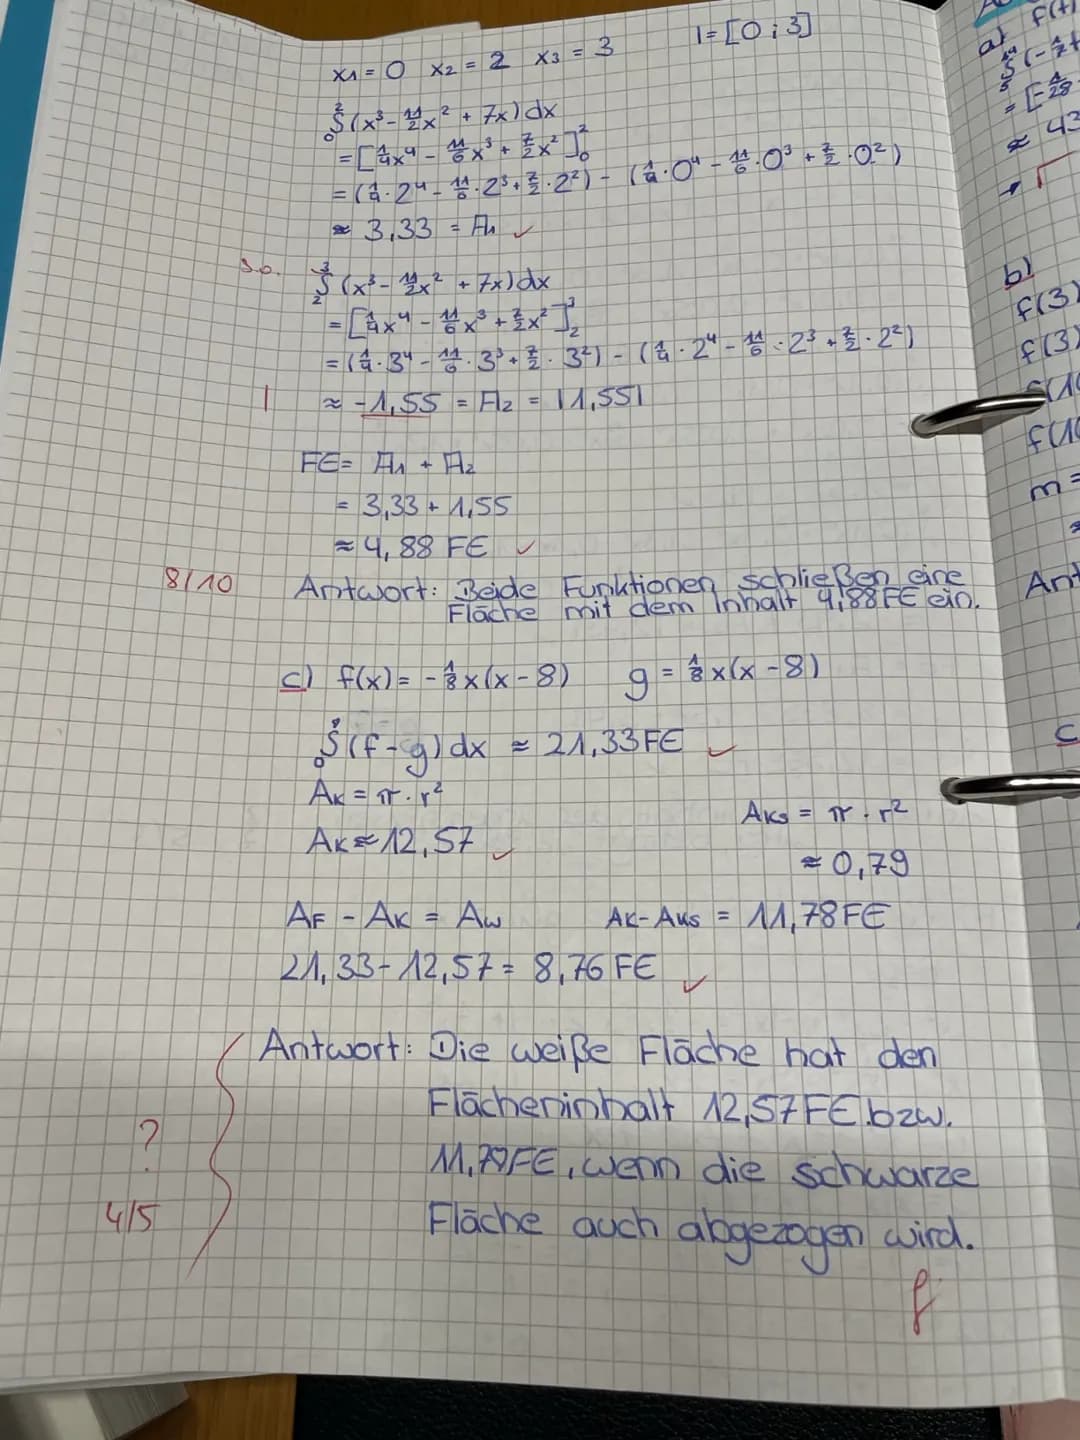 x1 = 0 x2 = 2 x3 = 3 I = [0 ; 3]
₀∫² (x³ - 11/2 x² + 7x) dx
= [1/4 x⁴ - 11/6 x³ + 7/2 x²]₀²
= (1/4 · 2⁴ - 11/6 · 2³ + 7/2 · 2²) - (1/4 · 0⁴ - 11/6 · 0³ + 7/2 · 0²)
≈ 3,33 = A1 ✓
s.o. ₂∫³ (x³ - 11/2 x² + 7x) dx
= [1/4 x⁴ - 11/6 x³ + 7/2 x²]₂³
= (1/4 · 3⁴ - 11/6 · 3³ + 7/2 · 3²) - (1/4 · 2⁴ - 11/6 · 2³ + 7/2 · 2²)
| ≈ -1,55 = A2 = |1,55|
FE = A1 + A2
= 3,33 + 1,55
≈ 4,88 FE ✓
8/10 Antwort: Beide Funktionen schließen eine
Fläche mit dem Inhalt 4,88FE ein.
c) f(x) = -1/8 x(x - 8) g = 1/8 x(x - 8)
₀∫⁸ (f - g) dx ≈ 21,33FE ✓
AK = π · r²
AKs = π · r²
AK ≈ 12,57 ✓
≈ 0,79
AF - AK = Aw AK - AKs = 11,78FE
21,33 - 12,57 = 8,76 FE ✓
Antwort: Die weiße Fläche hat den
Flächeninhalt 12,57FE bzw.
?
11,79FE, wenn die schwarze
4/5 Fläche auch abgezogen wird.
f
a) f(t)
b)
f(3)
f(3)
m =
Ant
c